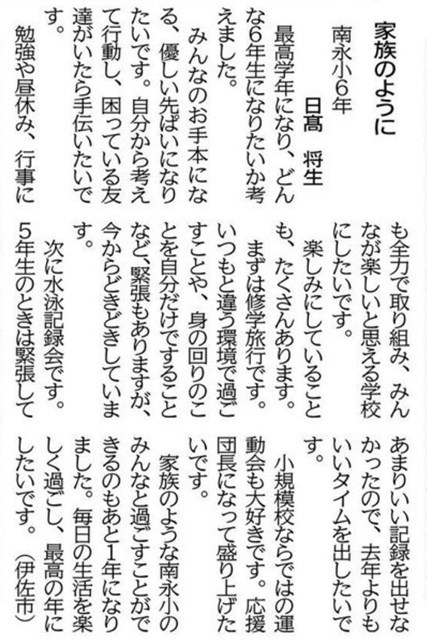 家族のように
南永小6年
日髙　将生
最高学年になり、どん
な6年生になりたいか考
えました。
みんなのお手本にな
る、優しい先ぱいになり
たいです。自分から考え
て行動し、困っている友
達がいたら手伝いたいで
す。
勉強や昼休み、行事に
も全力で取り組み、みん
なが楽しいと思える学校
にしたいです。
楽しみにしていること
も、たくさんあります。
まずは修学旅行です。
いつもと違う環境で過ご
すことや、身の回りのこ
とを自分だけですること
など、緊張もありますが、
今からどきどきしていま
す。
次に水泳記録会です。
5年生のときは緊張して
あまりいい記録を出せな
かったので、去年よりも
いいタイムを出したいで
す。
小規模校ならではの運
動会も大好きです。応援
団長になって盛り上げた
いです。
家族のような南永小の
みんなと過ごすことがで
きるのもあと1年になり
ました。毎日の生活を楽
しく過ごし、最高の年に
したいです。（伊佐市）